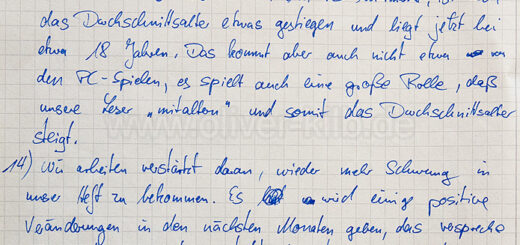 das Durchschnittsalter etwas gestiegen und liegt jetzt bei
etwa 18 Jahren. Das kommt aber auch nicht etwa von
den PC-Spielen, es spielt auch eine große Rolle, daß
unsere Leser „mitalten" und somit das Durchschnittsalter
steigt.
14) Wir arbeiten verstärkt daran, wieder mehr Schwung in
unser Heft zu bekommen. Es wird einige positive
Veränderungen in den nächsten Monaten geben, das verspreche